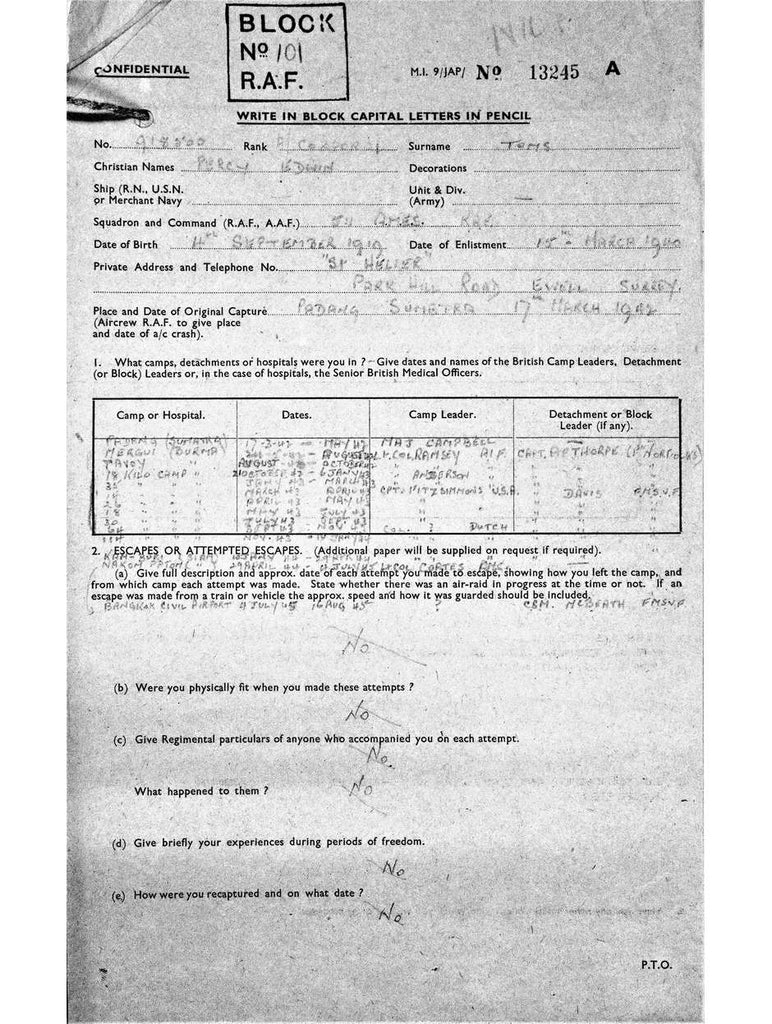 BLOCK
Nº 101
R.A.F.
CONFIDENTIAL
M.I. 9/JAP/ Nº 13245 A
WRITE IN BLOCK CAPITAL LETTERS IN PENCIL
No. Rank CORPORAL Surname TOMS
Christian Names PERCY EDWIN Decorations
Ship (R.N., U.S.N. Unit & Div. —
or Merchant Navy (Army)
Squadron and Command (R.A.F., A.A.F.) AMES.
Date of Birth 4TH SEPTEMBER 1919 Date of Enlistment 15TH MARCH 1940
Private Address and Telephone No. "ST HELIER"
PARK HILL ROAD EWELL SURREY.
Place and Date of Original Capture PADANG SUMATRA 17TH MARCH 1942
(Aircrew R.A.F. to give place
and date of a/c crash).
1. What camps, detachments or hospitals were you in ? — Give dates and names of the British Camp Leaders, Detachment
(or Block) Leaders or, in the case of hospitals, the Senior British Medical Officers.
Camp or Hospital. Dates. Camp Leader. Detachment or Block
Leader (if any).
PADANG (SUMATRA) 17-3-42 — MAY 42 MAJ CAMPBELL
MERGUI (BURMA) AUGUST LT. COL RAMSEY A.I.F. CAPT. APTHORPE
TAVOY " AUGUST — OCTOBER " " "
18 KILO CAMP " OCTOBER 42 — JANY 43 " ANDERSON " "
35 " " JANY 43 — MARCH 43 " " "
14 " " MARCH 43 APRIL 43 CPT. FITZSIMMONS U.S.A. " DAVIS F.M.S.V.F.
26 " " APRIL 43 MAY 43 " " "
18 " " MAY 43 JULY 43 " " "
30 " " JULY 43 SEPT. 43 " " "
" " SEPT 43 — NOV 43 COL. ? DUTCH
" " NOV. 43 — JANY 44
2. ESCAPES OR ATTEMPTED ESCAPES. (Additional paper will be supplied on request if required).
NAKOM PATOM " APRIL 44 — JULY 45 LT COL COATES
(a) Give full description and approx. date of each attempt you made to escape, showing how you left the camp, and
from which camp each attempt was made. State whether there was an air-raid in progress at the time or not. If an
escape was made from a train or vehicle the approx. speed and how it was guarded should be included.
BANGKOK CIVIL AIRPORT 4 JULY 45 16 AUG 45 ? CSM. McBEATH F.M.S.V.F
No
(b) Were you physically fit when you made these attempts ?
No
(c) Give Regimental particulars of anyone who accompanied you on each attempt.
No
What happened to them ? No
(d) Give briefly your experiences during periods of freedom.
No
(e) How were you recaptured and on what date ?
No
P.T.O.